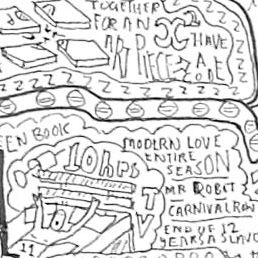 TOGETHER
FOR AN
ART PIECE
I HAVE
EEN BOOK
10hrs
TV
MODERN LOVE
ENTIRE
SEASON
MR ROBOT
CARNIVAL ROW
END OF 12
YEARS A SLAVE
11